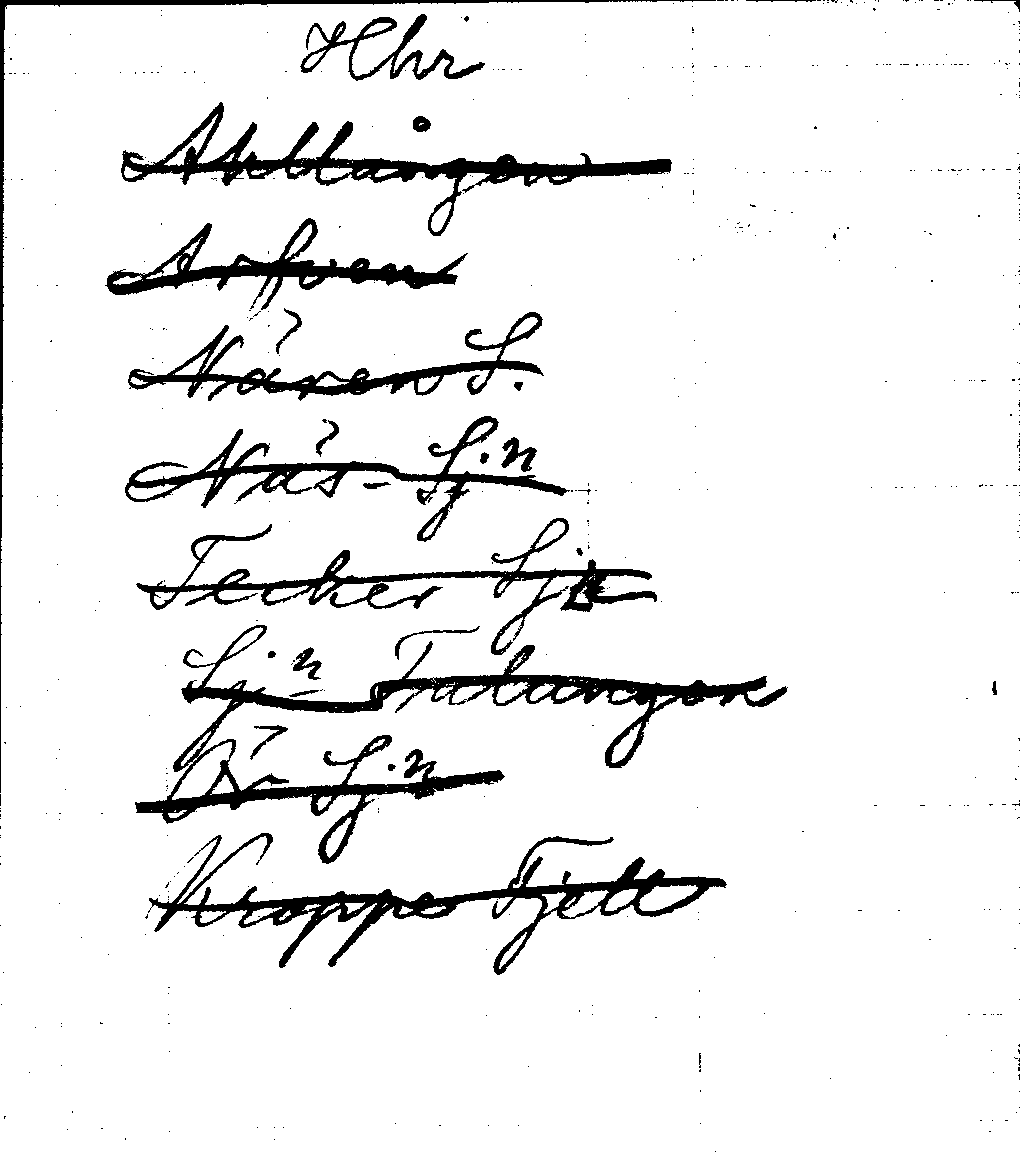 Hbr
Abblången
Arfven
Nären S.
Näs-Sj:n
Tecker Sjn
Sj:n Tralången
Ör Sj:n
Kroppe Fjell